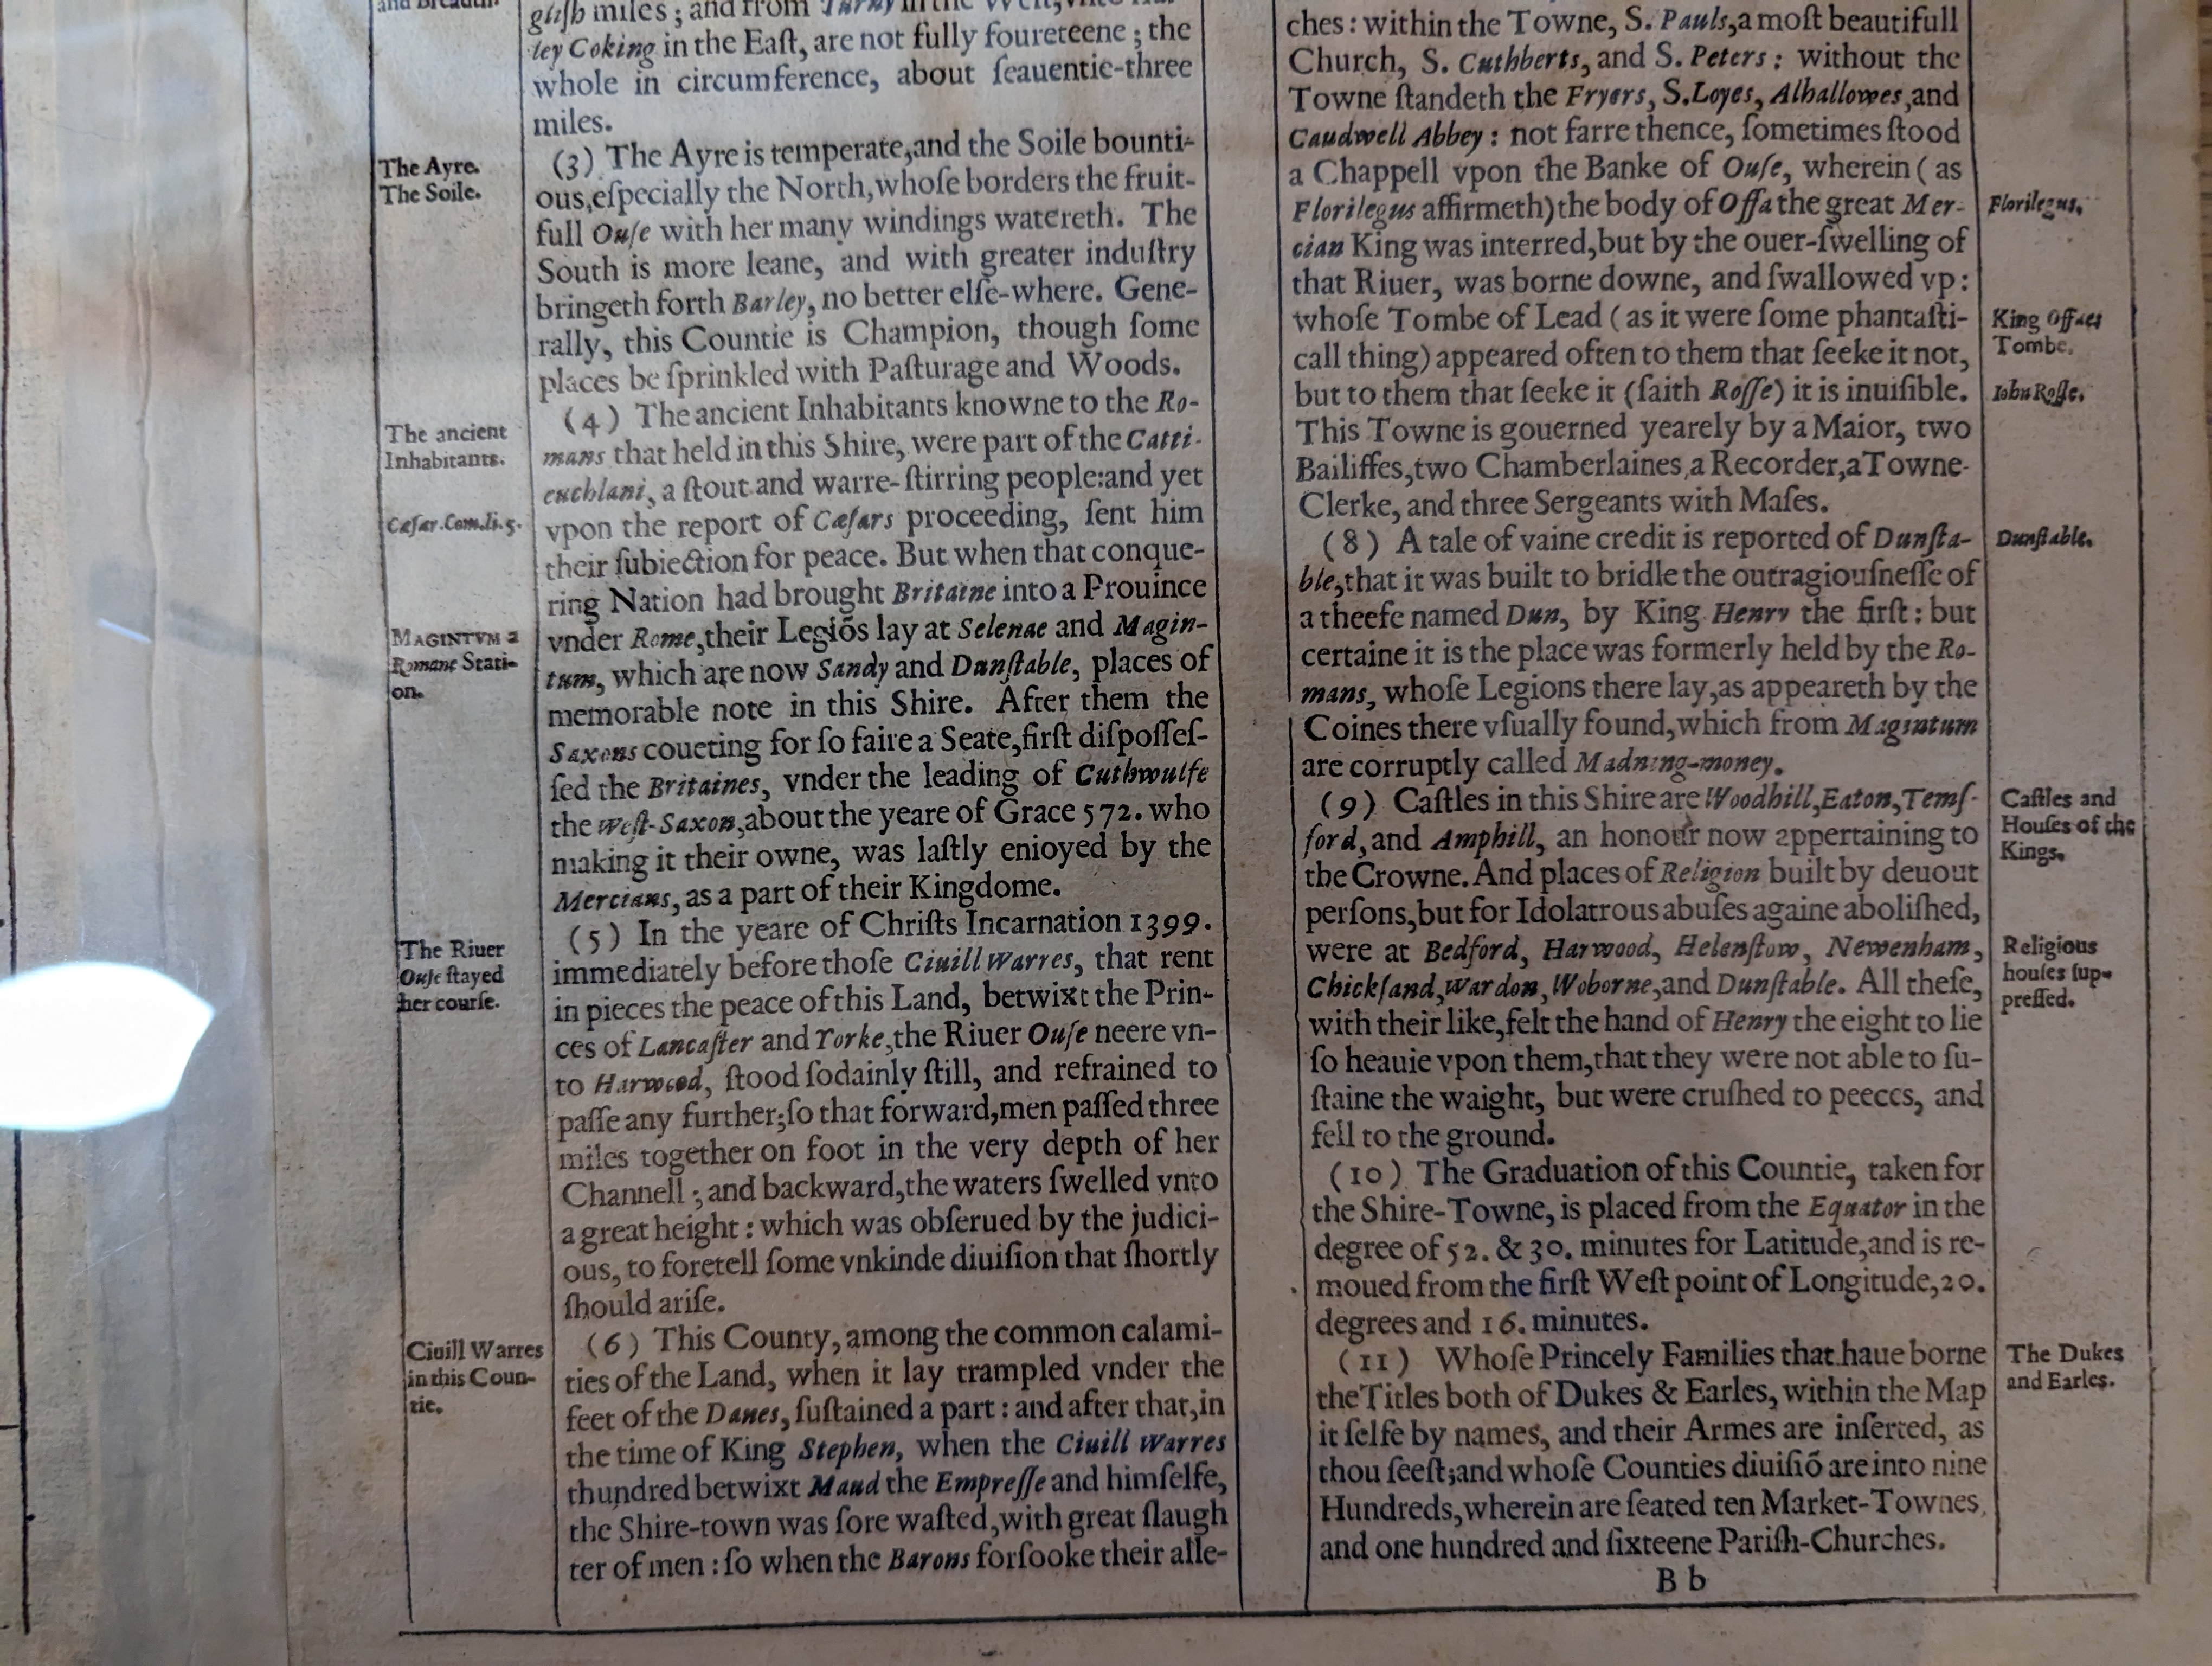 and Breadth.
glish miles; and from Turny in the West, vnto
ley Coking in the East, are not fully foureteene; the
whole in circumference, about ſeauentie-three
miles.
The Ayre.
The Soile.
(3) The Ayre is temperate,and the Soile bounti-
ous,eſpecially the North,whoſe borders the fruit-
full Ouſe with her many windings watereth. The
South is more leane, and with greater induſtry
bringeth forth Barley, no better elſe-where. Gene-
rally, this Countie is Champion, though ſome
places be ſprinkled with Paſturage and Woods.
The ancient
Inhabitants.
(4) The ancient Inhabitants knowne to the Ro-
mans that held in this Shire, were part of the Catti-
euchlani, a ſtout and warre-ſtirring people:and yet
Cæſar.Com.li.5.
vpon the report of Cæſars proceeding, ſent him
their ſubiection for peace. But when that conque-
ring Nation had brought Britaine into a Prouince
MAGINTVM a
Romane Stati-
on.
vnder Rome,their Legiōs lay at Selenae and Magin-
tum, which are now Sandy and Dunſtable, places of
memorable note in this Shire. After them the
Saxons coueting for ſo faire a Seate,firſt diſpoſſeſ-
ſed the Britaines, vnder the leading of Cuthwulfe
the Weſt-Saxon,about the yeare of Grace 572. who
making it their owne, was laſtly enioyed by the
Mercians, as a part of their Kingdome.
The Riuer
Ouſe ſtayed
her courſe.
(5) In the yeare of Chriſts Incarnation 1399.
immediately before thoſe Ciuill Warres, that rent
in pieces the peace of this Land, betwixt the Prin-
ces of Lancaſter and Yorke,the Riuer Ouſe neere vn-
to Harwood, ſtood ſodainly ſtill, and refrained to
paſſe any further;ſo that forward,men paſſed three
miles together on foot in the very depth of her
Channell ; and backward,the waters ſwelled vnto
a great height : which was obſerued by the judici-
ous, to foretell ſome vnkinde diuiſion that ſhortly
ſhould ariſe.
Ciuill Warres
in this Coun-
tie.
(6) This County, among the common calami-
ties of the Land, when it lay trampled vnder the
feet of the Danes, ſuſtained a part : and after that,in
the time of King Stephen, when the Ciuill Warres
thundred betwixt Maud the Empreſſe and himſelfe,
the Shire-town was ſore waſted,with great ſlaugh
ter of men : ſo when the Barons forſooke their alle-
ches : within the Towne, S. Pauls,a moſt beautifull
Church, S. Cuthberts, and S. Peters : without the
Towne ſtandeth the Fryers, S.Loyes, Alhallowes,and
Caudwell Abbey : not farre thence, ſometimes ſtood
a Chappell vpon the Banke of Ouſe, wherein ( as
Florilegus affirmeth)the body of Offa the great Mer-
cian King was interred,but by the ouer-ſwelling of
that Riuer, was borne downe, and ſwallowed vp :
whoſe Tombe of Lead ( as it were ſome phantaſti-
call thing) appeared often to them that ſeeke it not,
but to them that ſeeke it (ſaith Roſſe) it is inuiſible.
This Towne is gouerned yearely by a Maior, two
Bailiffes,two Chamberlaines,a Recorder,a Towne-
Clerke, and three Sergeants with Maſes.
Florilegus.
King Offaes
Tombe.
Iohn Roſſe.
(8) A tale of vaine credit is reported of Dunſta-
ble,that it was built to bridle the outragiouſneſſe of
a theefe named Dun, by King Henry the firſt : but
certaine it is the place was formerly held by the Ro-
mans, whoſe Legions there lay,as appeareth by the
Coines there vſually found,which from Magintum
are corruptly called Madning-money.
Dunſtable.
(9) Caſtles in this Shire are Woodhill,Eaton,Temſ-
ford,and Amphill, an honour now appertaining to
the Crowne. And places of Religion built by deuout
perſons,but for Idolatrous abuſes againe aboliſhed,
were at Bedford, Harwood, Helenſtow, Newenham,
Chickſand,Wardon,Woborne,and Dunſtable. All theſe,
with their like,felt the hand of Henry the eight to lie
ſo heauie vpon them,that they were not able to ſu-
ſtaine the waight, but were cruſhed to peeces, and
fell to the ground.
Caſtles and
Houſes of the
Kings.
Religious
houſes ſup-
preſſed.
(10) The Graduation of this Countie, taken for
the Shire-Towne, is placed from the Equator in the
degree of 52. & 30. minutes for Latitude,and is re-
moued from the firſt Weſt point of Longitude,20.
degrees and 16. minutes.
(11) Whoſe Princely Families that haue borne
the Titles both of Dukes & Earles, within the Map
it ſelfe by names, and their Armes are inſerted, as
thou ſeeſt;and whoſe Counties diuiſiō are into nine
Hundreds,wherein are ſeated ten Market-Townes,
and one hundred and ſixteene Pariſh-Churches.
The Dukes
and Earles.
B b